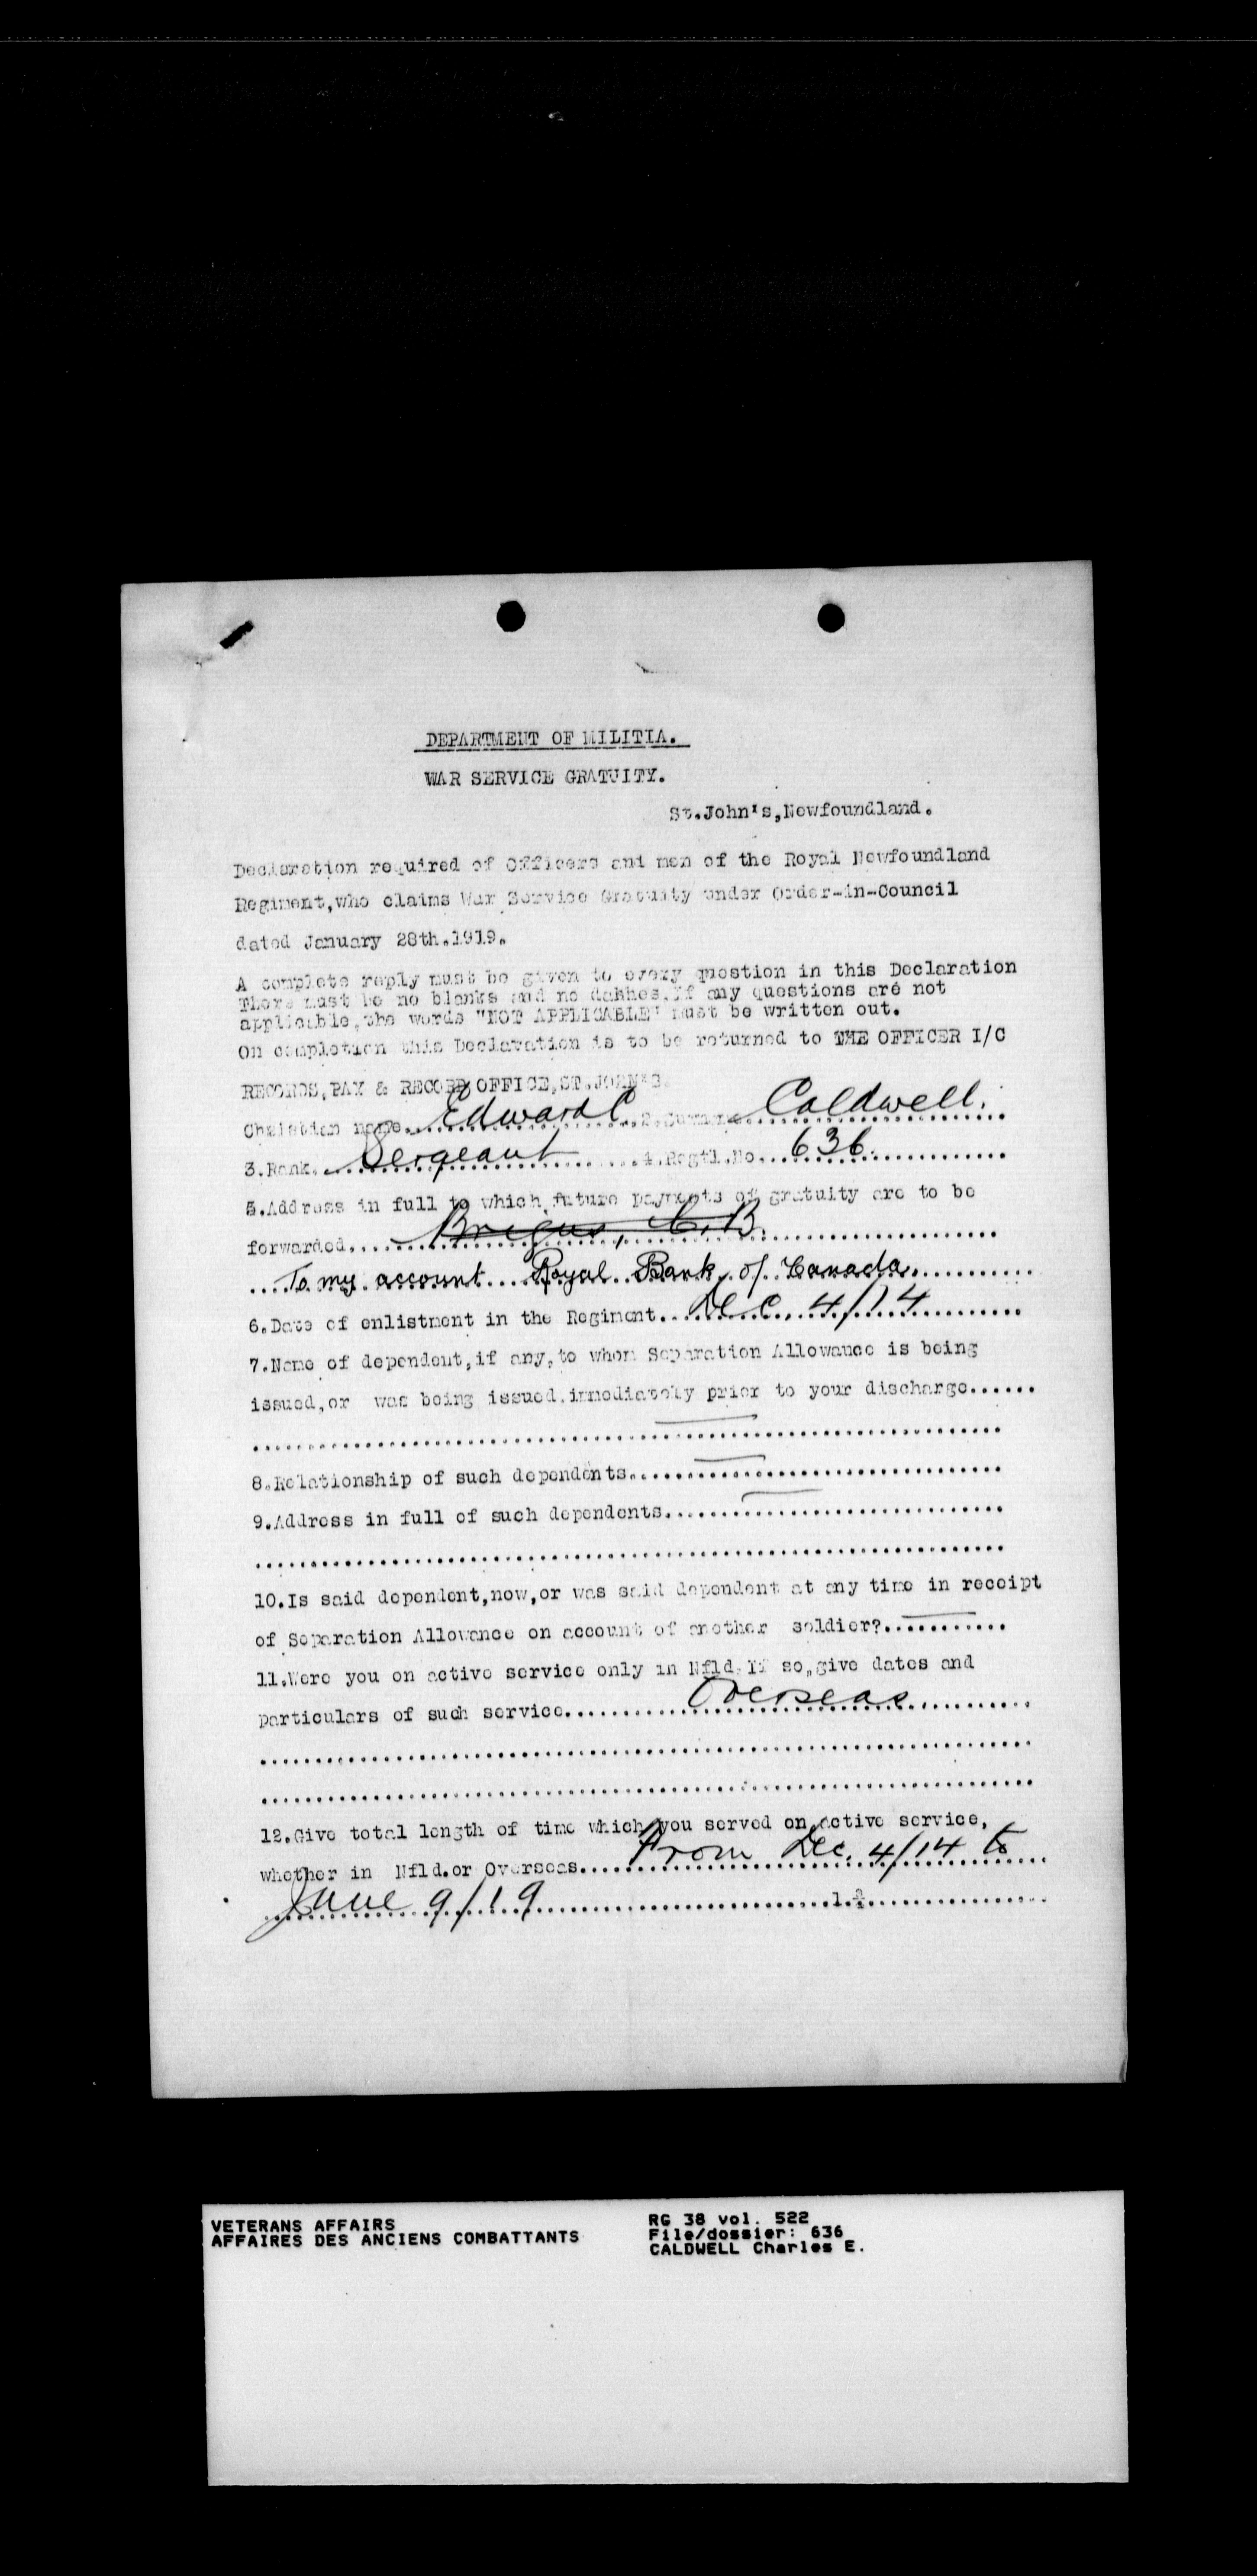 DEPARTMENT OF MILITIA.
WAR SERVICE GRATUITY.
St.John's,Newfoundland.
Declaration required of Officers and men of the Royal Newfoundland
Regiment,who claims War Service Gratuity under Order-in-Council
dated January 28th.1919.
A complete reply must be given to every question in this Declaration
There must be no blanks and no dashes.If any questions are not
applicable,the words "NOT APPLICABLE" must be written out.
On completion this Declaration is to be returned to THE OFFICER I/C
RECORDS,PAY & RECORD OFFICE,ST.JOHN'S.
Christian name...Edward C...2.Surname...Caldwell.
3.Rank...Sergeant...4.Regtl.No...636.
5.Address in full to which future payments of gratuity are to be
forwarded...Brigus, C.B.
...To my account Royal Bank of Canada...
6.Date of enlistment in the Regiment...Dec. 4/14
7.Name of dependent,if any,to whom Separation Allowance is being
issued,or was being issued,immediately prior to your discharge......
8.Relationship of such dependents...
9.Address in full of such dependents...
10.Is said dependent,now,or was said dependent at any time in receipt
of Separation Allowance on account of another soldier?...
11.Were you on active service only in Nfld.If so,give dates and
particulars of such service...Overseas
12.Give total length of time which you served on active service,
whether in Nfld.or Overseas...From Dec. 4/14 to
June 9/19
VETERANS AFFAIRS
AFFAIRES DES ANCIENS COMBATTANTS
RG 38 vol. 522
File/dossier: 636
CALDWELL Charles E.